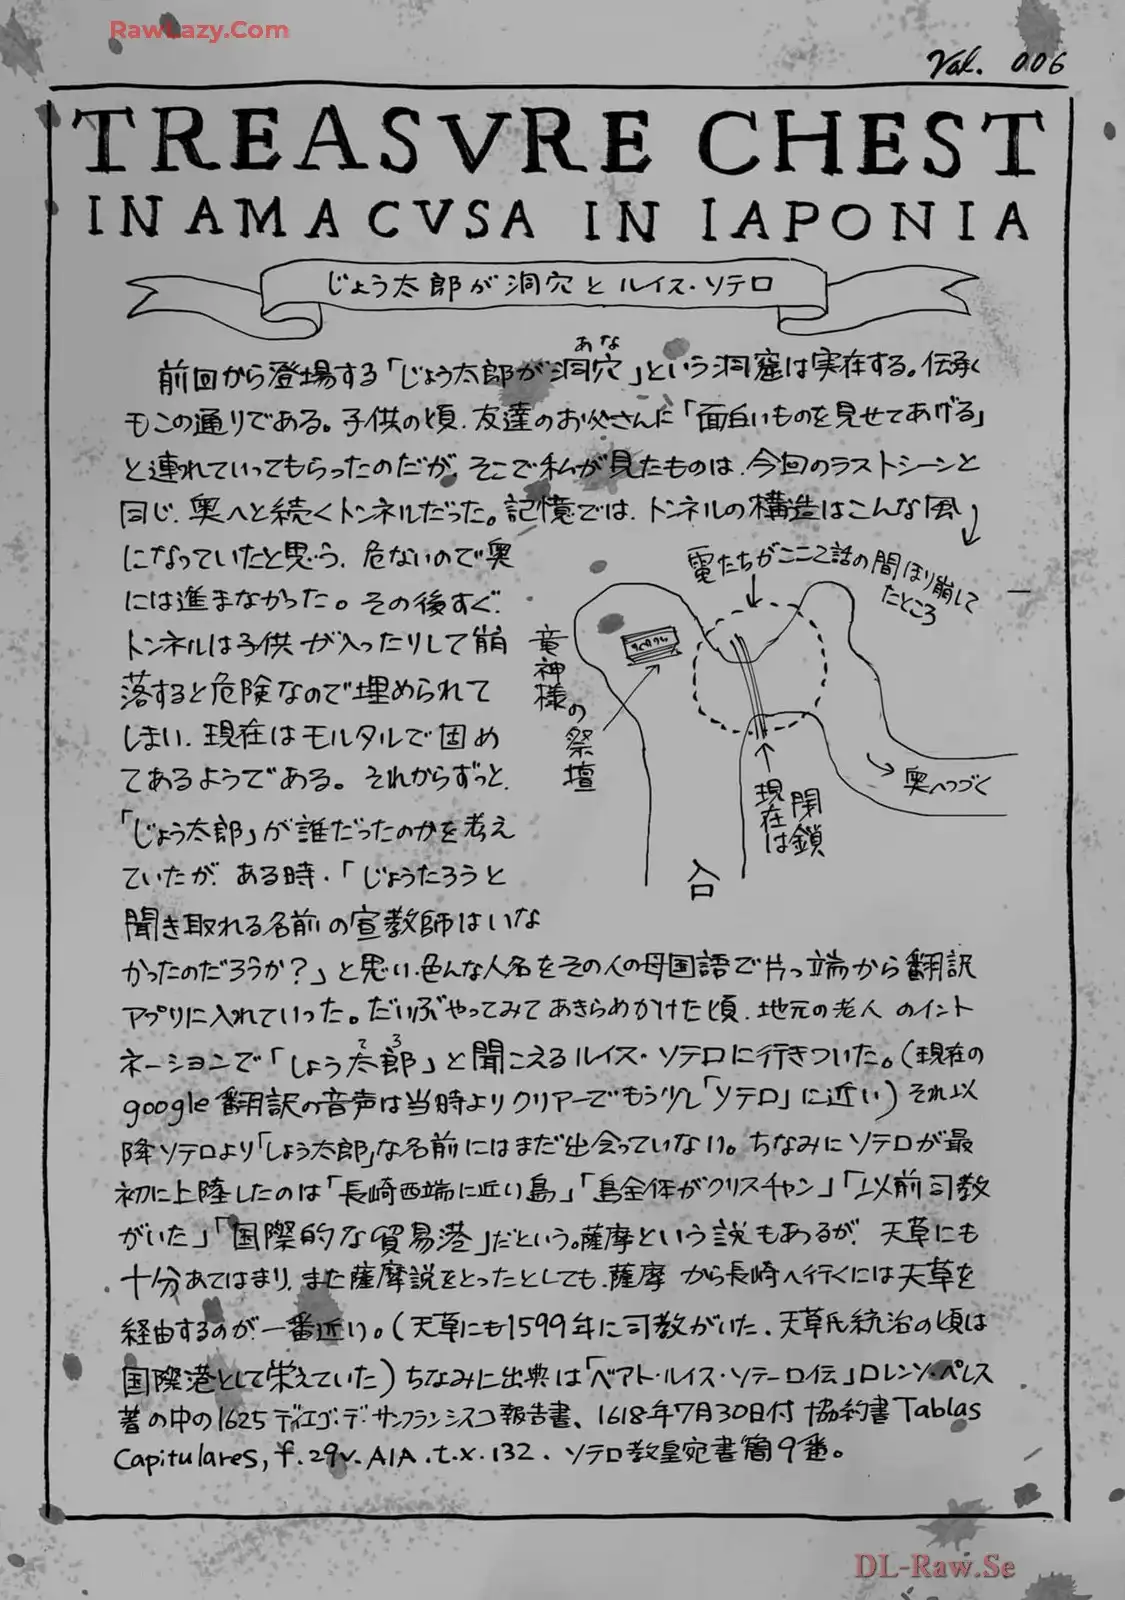 RawLazy.Com
Vol. 006
TREASVRE CHEST
IN AMACVSA IN IAPONIA
じょう太郎が洞穴とルイス・ソテロ
あな
前回から登場する「じょう太郎が洞穴」という洞窟は実在する。伝承
もこの通りである。子供の頃、友達のお父さんに「面白いものを見せてあげる」
と連れていってもらったのだが、そこで私が見たものは、今回のラストシーンと
同じ、奥へと続くトンネルだった。記憶では、トンネルの構造はこんな風
になっていたと思う、危ないので奥
には進まなかった。その後すぐ、
トンネルは子供が入ったりして崩
落すると危険なので埋められて
しまい、現在はモルタルで固め
てあるようである。それからずっと、
「じょう太郎」が誰だったのかを考え
ていたが、ある時、「じょうたろうと
聞き取れる名前の宣教師はいな
竜たちがここ2話の間ほり崩して
たところ
竜神様の祭壇
現在は
閉鎖
奥へつづく
入口
かったのだろうか?」と思い、色んな人名をその人の母国語で片っ端から翻訳
アプリに入れていった。だいぶやってみてあきらめかけた頃、地元の老人のイント
てろ
ネーションで「しょう太郎」と聞こえるルイス・ソテロに行きついた。(現在の
google翻訳の音声は当時よりクリアーでもう少し「ソテロ」に近い)それ以
降ソテロより「しょう太郎」な名前にはまだ出会っていない。ちなみにソテロが最
初に上陸したのは「長崎西端に近い島」「島全体がクリスチャン」「以前司教
がいた」「国際的な貿易港」だという。薩摩という説もあるが、天草にも
十分あてはまり、また薩摩説をとったとしても、薩摩から長崎へ行くには天草を
経由するのが一番近い。(天草にも1599年に司教がいた、天草氏統治の頃は
国際港として栄えていた)ちなみに出典は「ベアト・ルイス・ソテーロ伝」ロレンソ・ペレス
著の中の1625ディエゴ・デ・サンフランシスコ報告書、1618年7月30日付 協約書Tablas
Capitulares, f.29v.AIA.t.x.132、ソテロ教皇宛書簡9番。
DL-Raw.Se